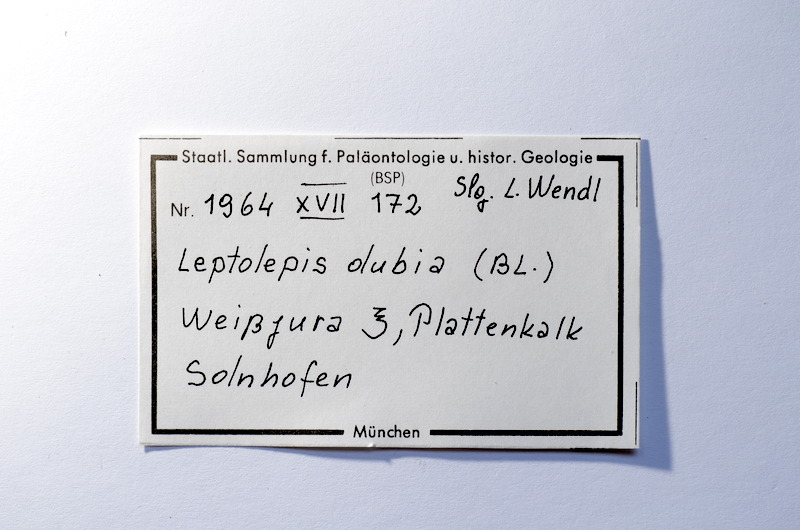 Staatl. Sammlung f. Paläontologie u. histor. Geologie
(BSP)
Nr. 1964 XVII 172 Slg. L. Wendl
Leptolepis dubia (BL.)
Weißjura ξ, Plattenkalk
Solnhofen
München